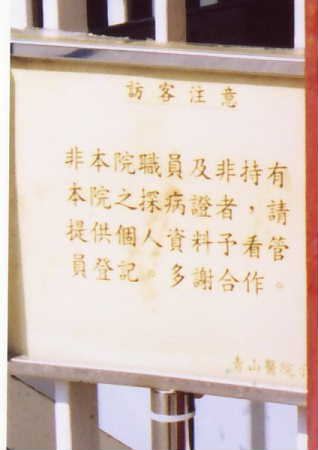 訪客注意
非本院職員及非持有
本院之探病證者，請
提供個人資料予看管
員登記。多謝合作。
青山醫院